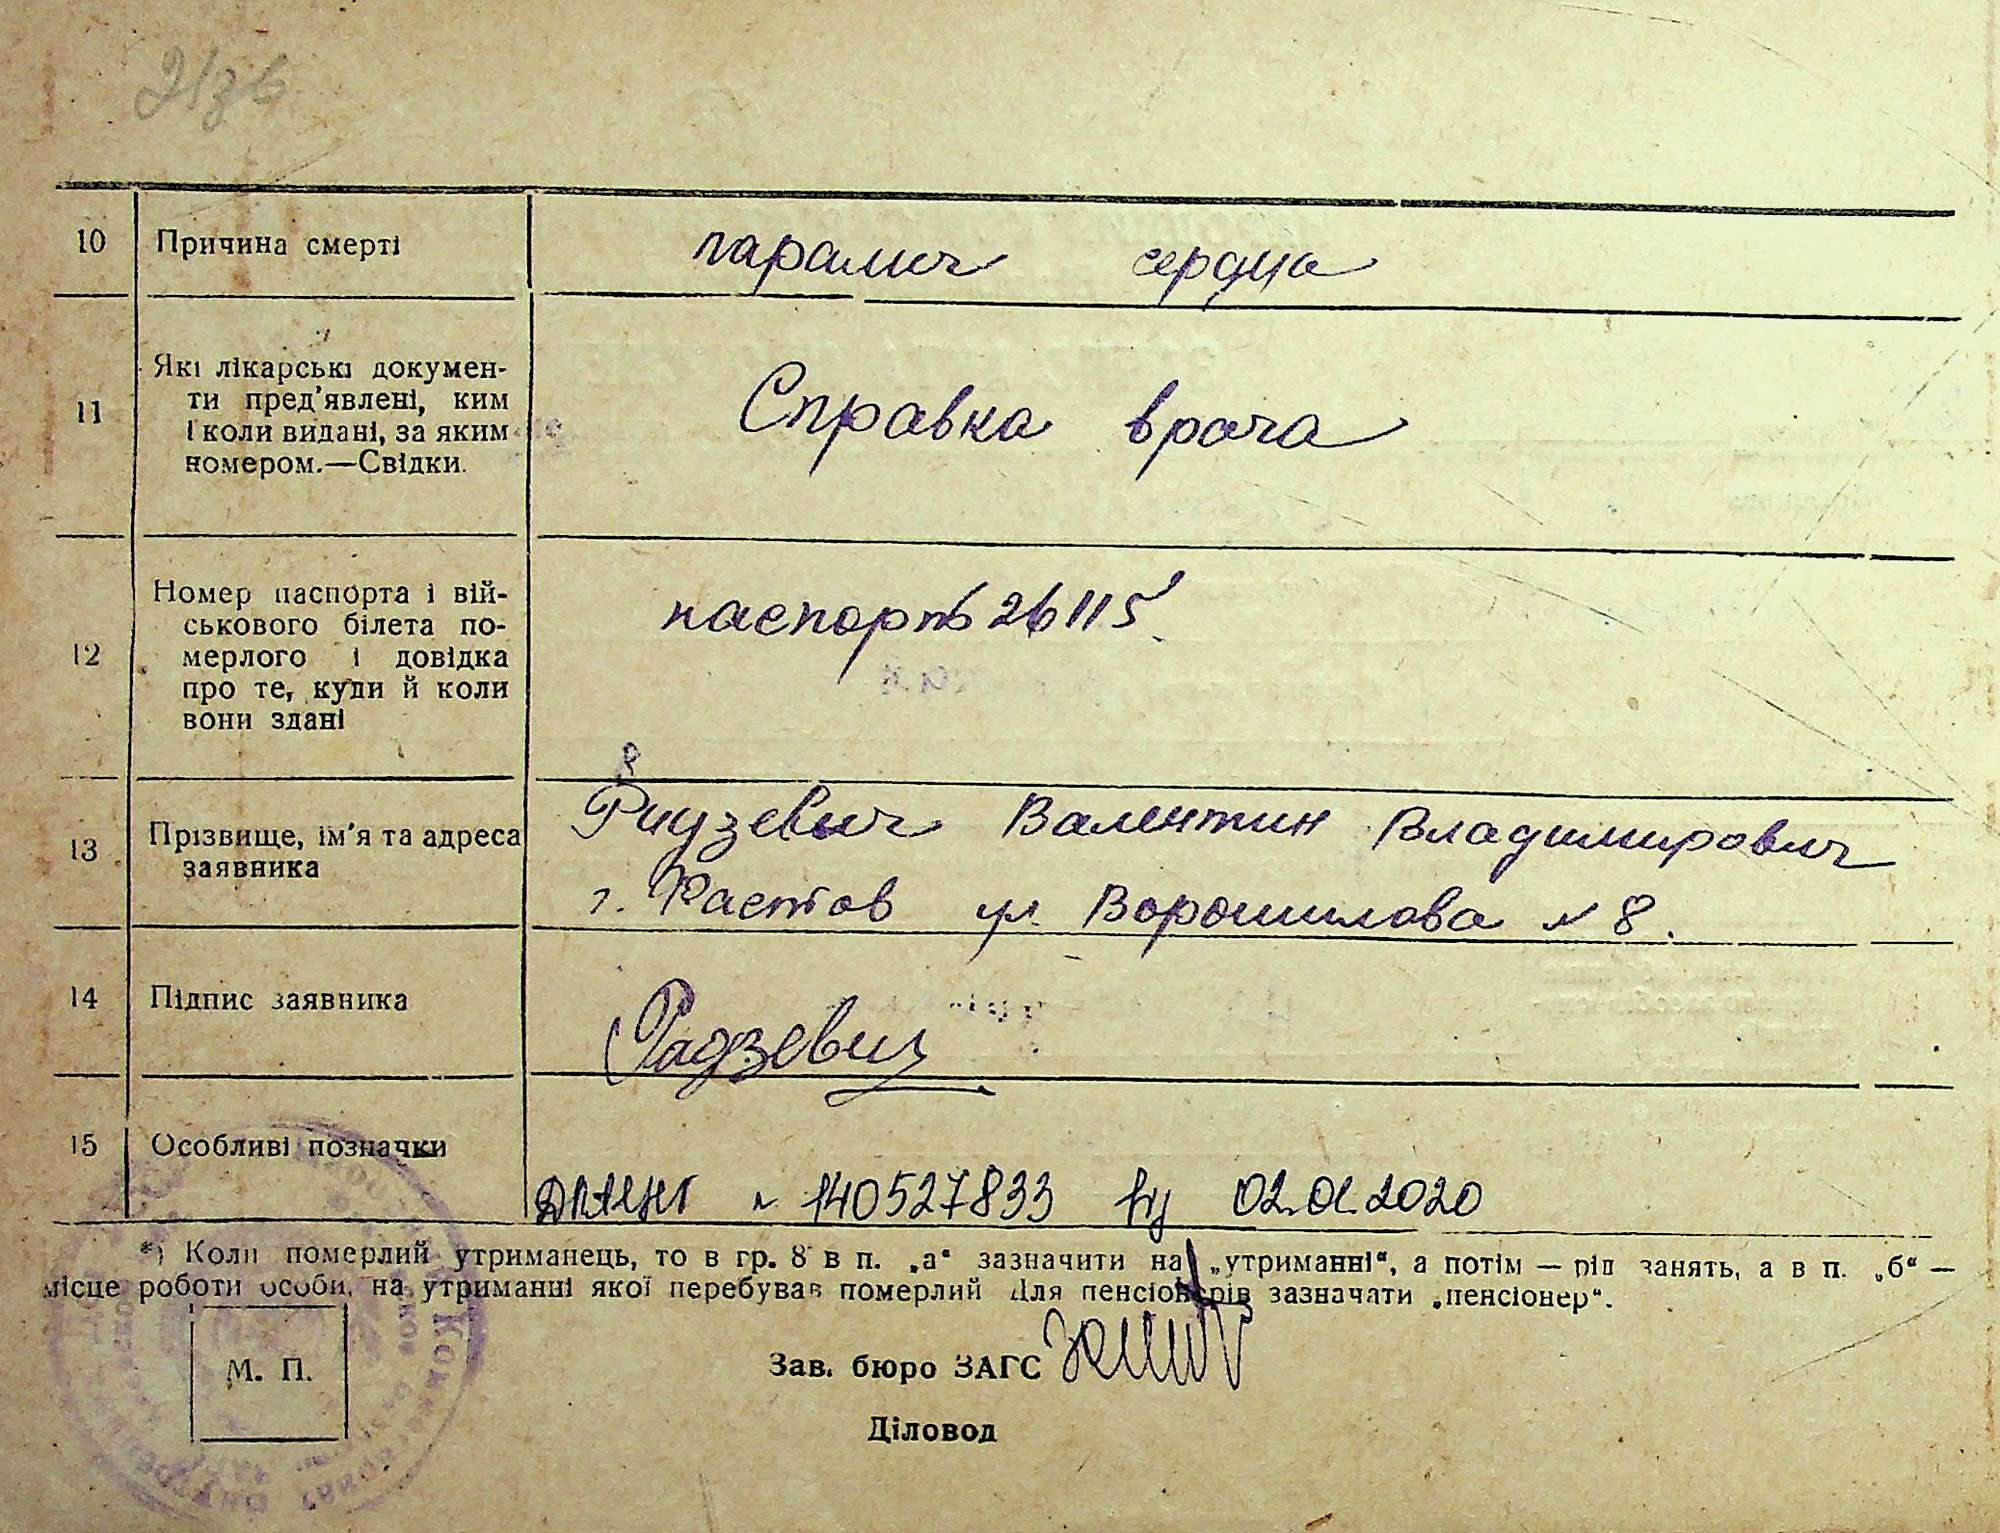 10 Причина смерті паралич сердца
11 Які лікарські докумен-
ти пред'явлені, ким
і коли видані, за яким
номером.—Свідки.
Справка врача
12 Номер паспорта і вій-
ськового білета по-
мерлого і довідка
про те, куди й коли
вони здані
паспорт 26115
13 Прізвище, ім'я та адреса
заявника
Радзевич Валентин Владимирович
г. Фастов ул. Ворошилова № 8.
14 Підпис заявника Радзевич
15 Особливі позначки
№ 140527833 02.01.2020
*) Коли померлий утриманець, то в гр. 8 в п. „а“ зазначити на „утриманні“, а потім — рід занять, а в п. „б“ —
місце роботи особи, на утриманні якої перебував померлий Для пенсіонерів зазначати „пенсіонер“.
М. П.
Зав. бюро ЗАГС
Діловод